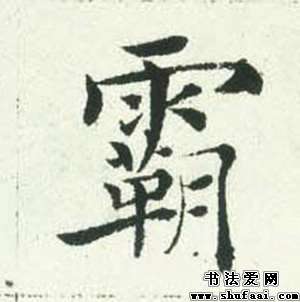 霸
书法爱网
www.shufaai.com